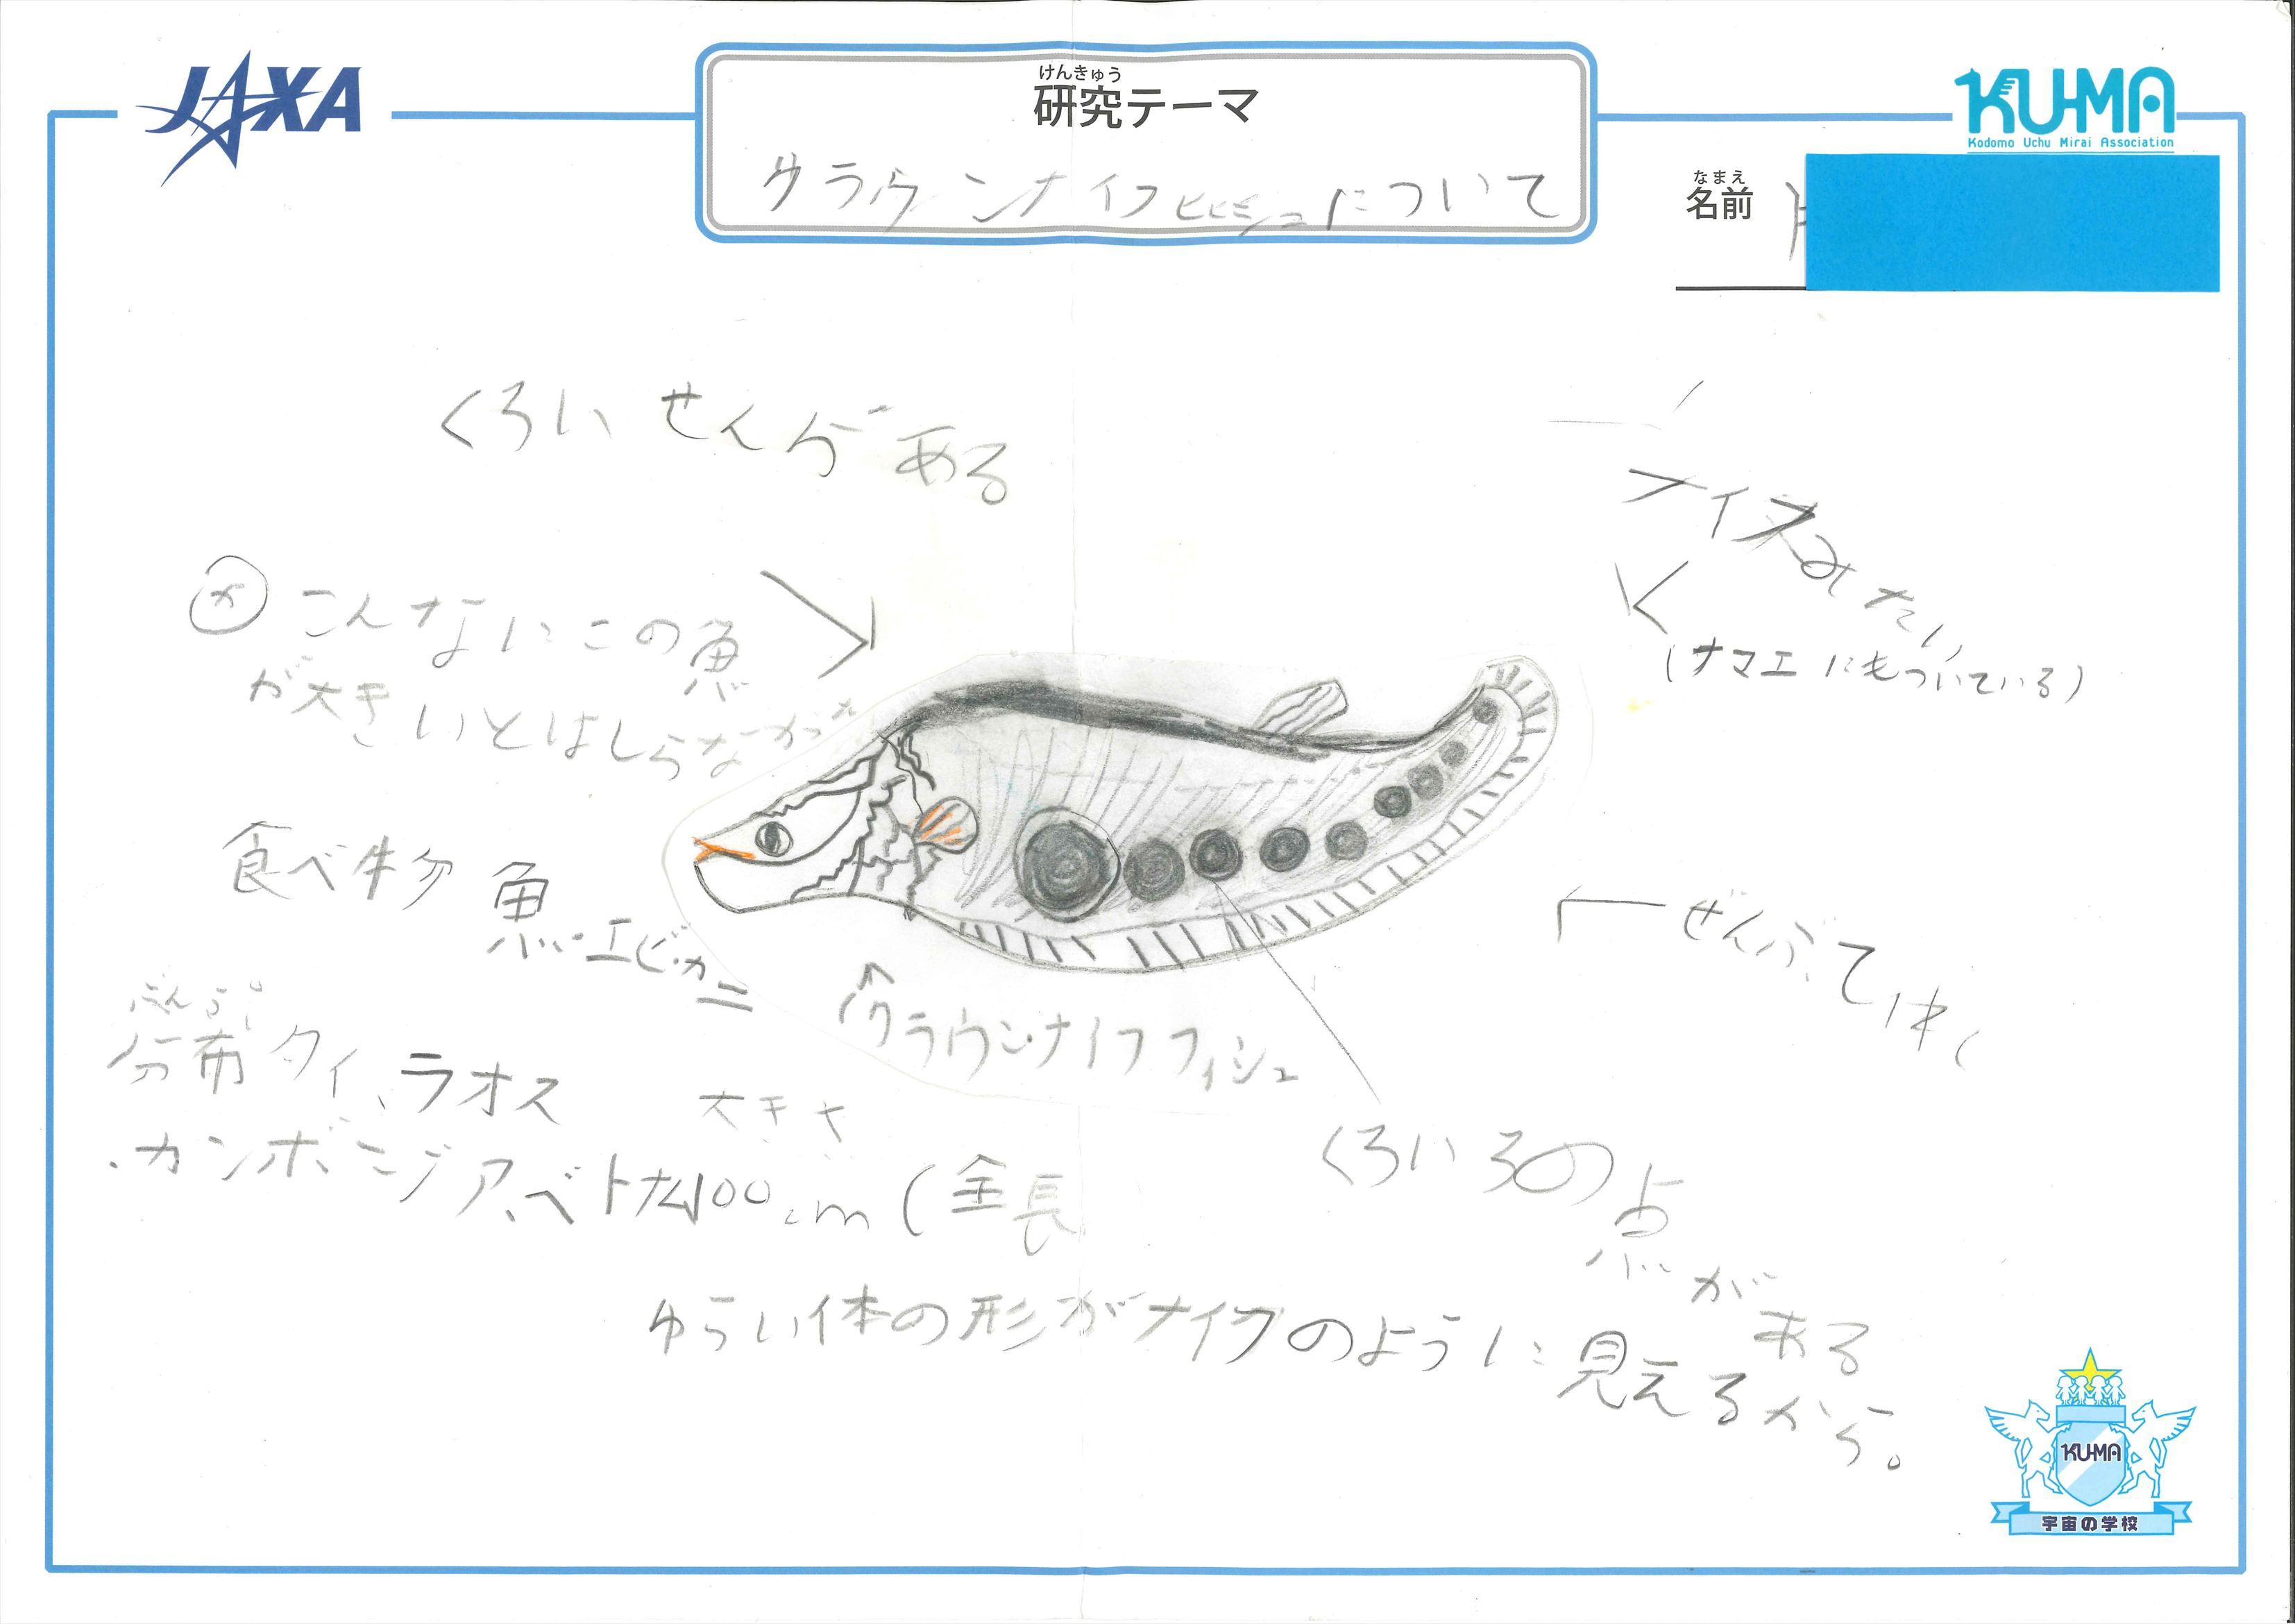 JAXA
けんきゅう
研究テーマ
クラウンナイフについて
KU-MA
Kodomo Uchu Mirai Association
なまえ
名前
くろいせんがある
ナイフみたい
(ナマエにもついている)
こんなにこの魚
が大きいとはしらなかった
食べ物 魚・エビ・カニ
ぶんぷ
分布 タイ、ラオス
・カンボジア、ベトナム
大きさ
100cm(全長
↑クラウンナイフフィシュ
←ぜんぶ
くろいろの点がある
ゆらい体の形がナイフのように見えるから。
KU-MA
宇宙の学校